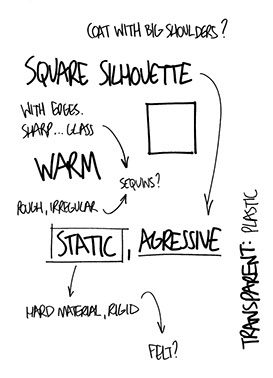 COAT WITH BIG SHOULDERS?
SQUARE SILHOUETTE
WITH EDGES.
SHARP... GLASS
WARM
SEQUINS?
ROUGH, IRREGULAR
STATIC, AGRESSIVE
HARD MATERIAL, RIGID
FELT?
TRANSPARENT: PLASTIC